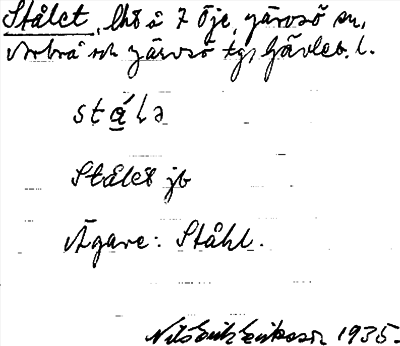 Stålet, lht å 7 Öje, Järvsö sn,
Arbrå och Järvsö tg, Gävleb. l.
stålə
Stålet jb
Ägare: Ståhl.
Nils Erik Eriksson 1935.